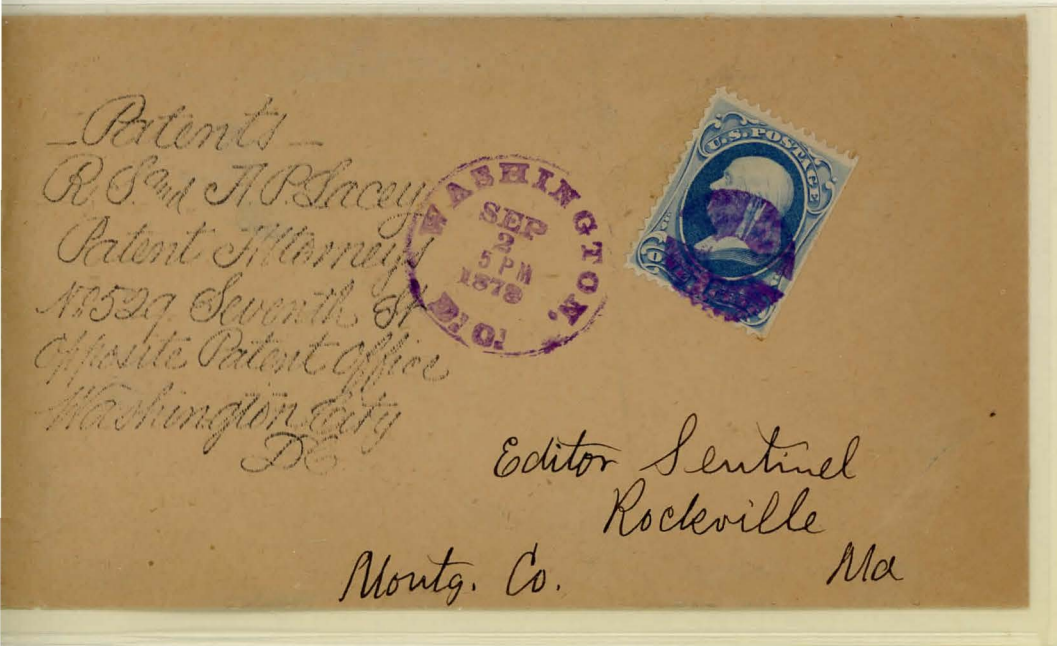 Patents
R. S. and A. P. Lacey
Patent Attorneys
No. 529 Seventh St
Opposite Patent Office
Washington City
DC
WASHINGTON, D.C.
SEP
2
5 PM
1878
U.S. POSTAGE
Editor Sentinel
Rockville
Montg. Co. Md